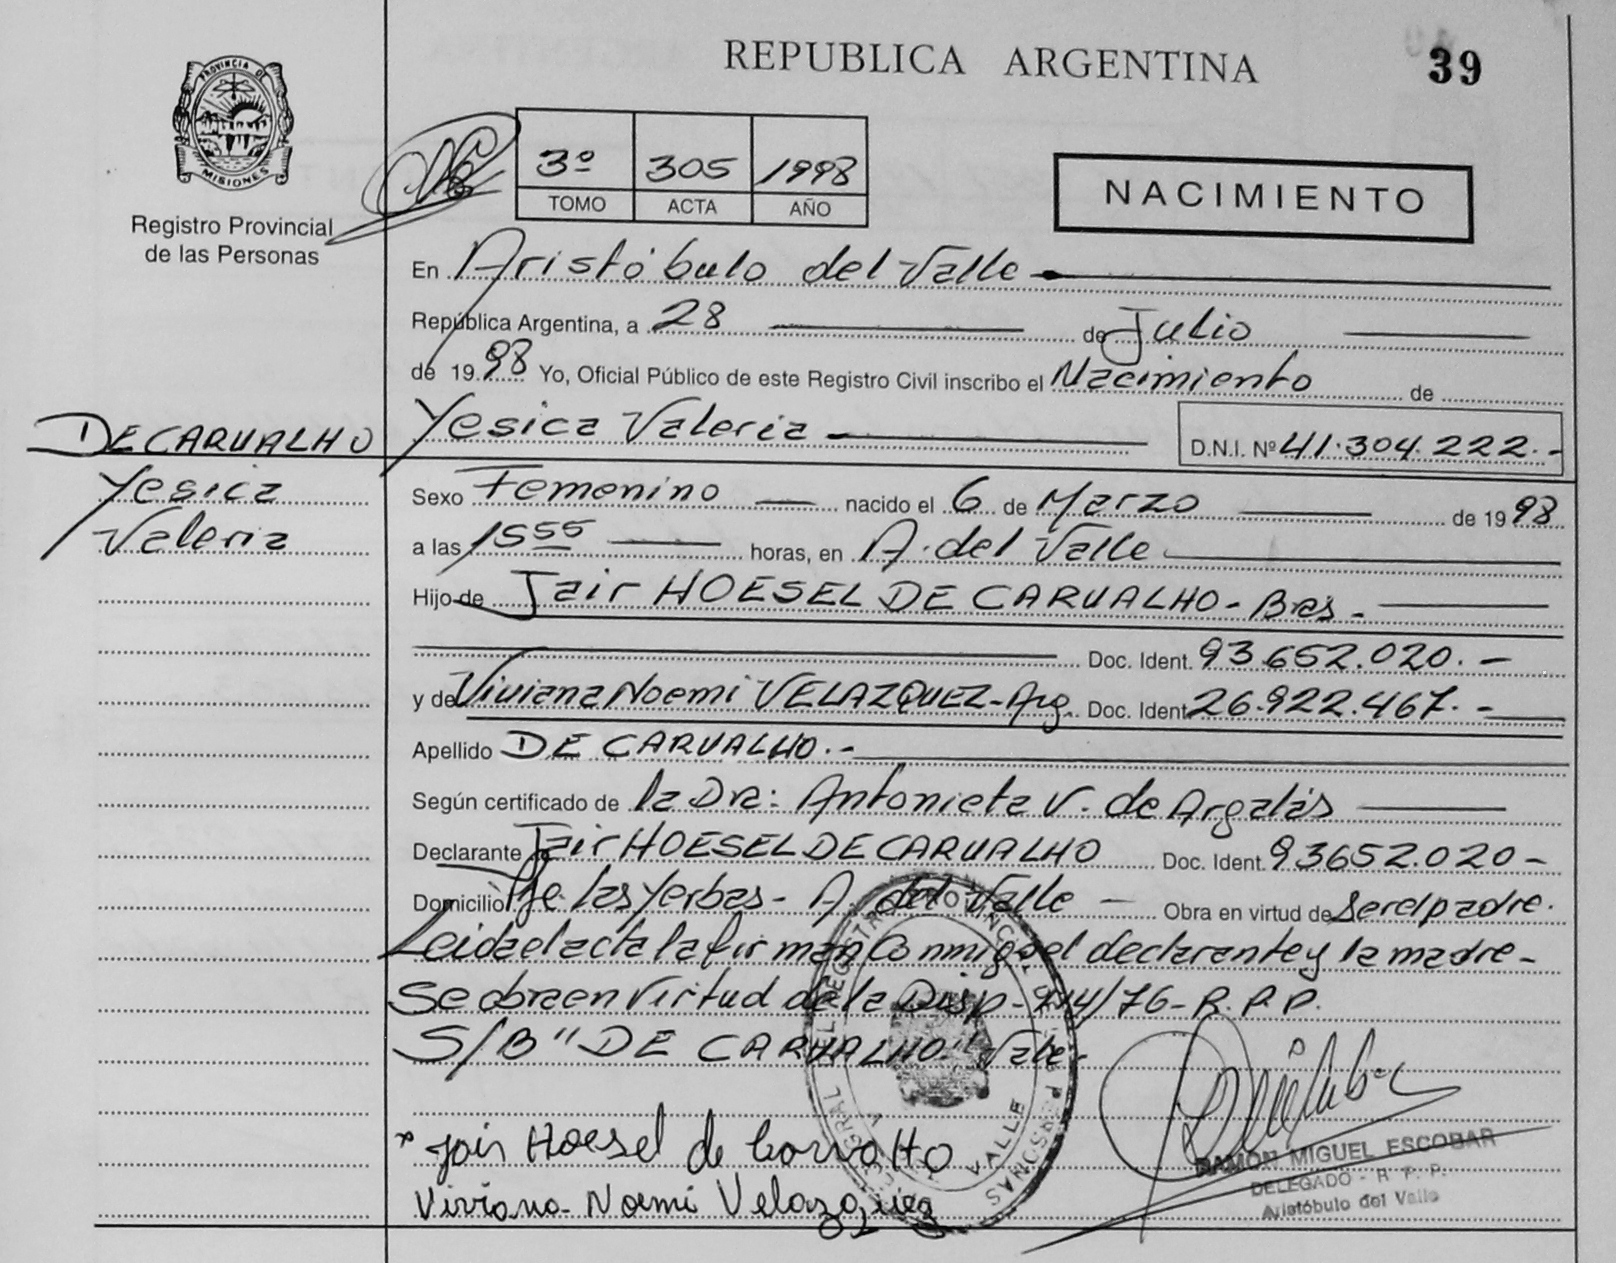 REPUBLICA ARGENTINA
39
PROVINCIA DE
MISIONES
Registro Provincial
de las Personas
3º 305 1998
TOMO ACTA AÑO
NACIMIENTO
En Aristóbulo del Valle
República Argentina, a 28 de Julio
de 1998 Yo, Oficial Público de este Registro Civil inscribo el Nacimiento de
DE CARVALHO
Yesica
Valeria
Yesica Valeria D.N.I. Nº 41.304.222.-
Sexo Femenino nacido el 6 de Marzo de 1998
a las 1555 horas, en A. del Valle
Hijo de Jair HOESEL DE CARVALHO - Bras -
Doc. Ident. 93.652.020. -
y de Viviana Noemi VELAZQUEZ - Arg. Doc. Ident. 26.922.467. -
Apellido DE CARVALHO. -
Según certificado de la Dra: Antonieta V. de Argalás
Declarante Jair HOESEL DE CARVALHO Doc. Ident. 93652.020 -
Domicilio Pje las Yerbas - A. del Valle - Obra en virtud de Ser el padre.
Leida el acta la firman conmigo el declarante y la madre -
Se obra en virtud de la Disp - /76 - R.P.P.
S/B "DE CARVALHO" Vale.
* Jair Hoesel de Carvalho
Viviana Noemi Velazquez
RAMON MIGUEL ESCOBAR
DELEGADO - R. P. P.
Aristóbulo del Valle
VALLE